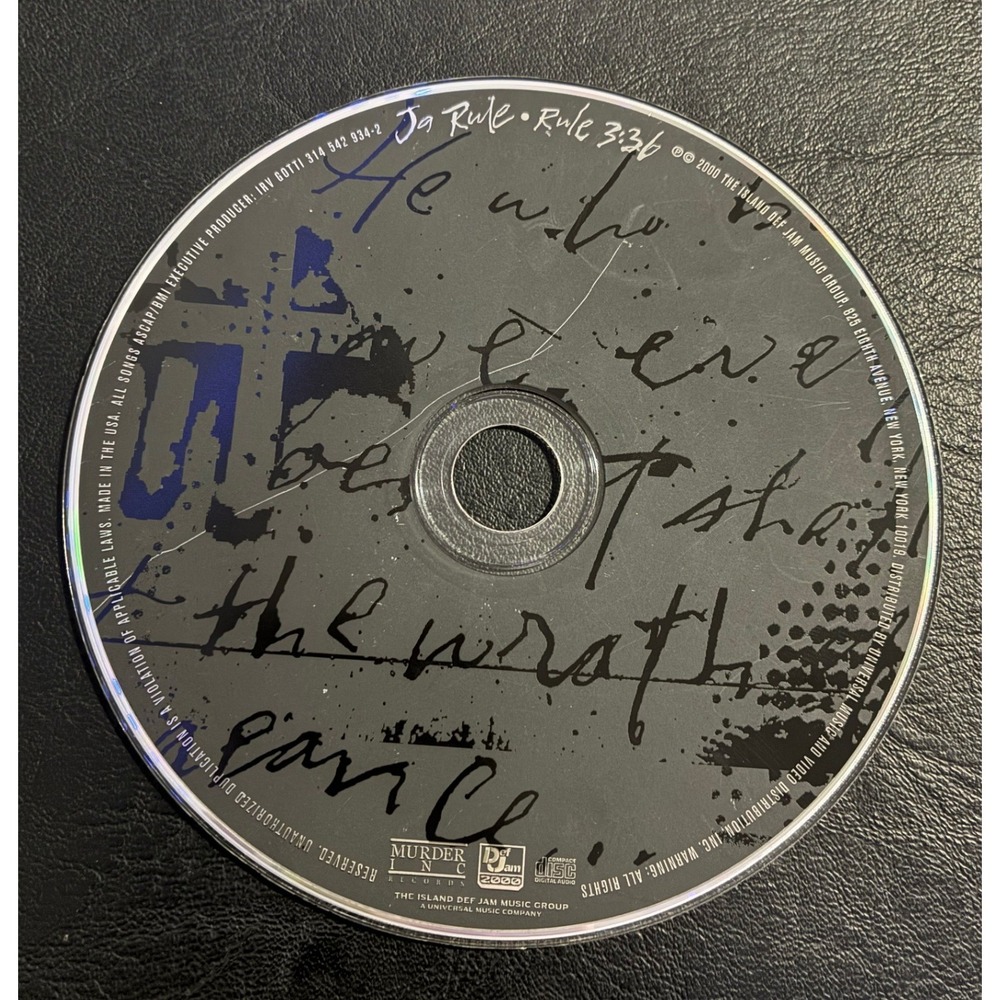 Ja Rule • Rule 3:36
℗© 2000 THE ISLAND DEF JAM MUSIC GROUP, 825 EIGHTH AVENUE, NEW YORK, NEW YORK 10019. DISTRIBUTED BY UNIVERSAL MUSIC AND VIDEO DISTRIBUTION, INC. WARNING: ALL RIGHTS
RESERVED. UNAUTHORIZED DUPLICATION IS A VIOLATION OF APPLICABLE LAWS. MADE IN THE USA. ALL SONGS ASCAP/BMI EXECUTIVE PRODUCER: IRV GOTTI 314 542 934-2
He who
eve
shall
the wrath
MURDER
INC
RECORDS
Def
Jam
2000
COMPACT
disc
DIGITAL AUDIO
THE ISLAND DEF JAM MUSIC GROUP
A UNIVERSAL MUSIC COMPANY